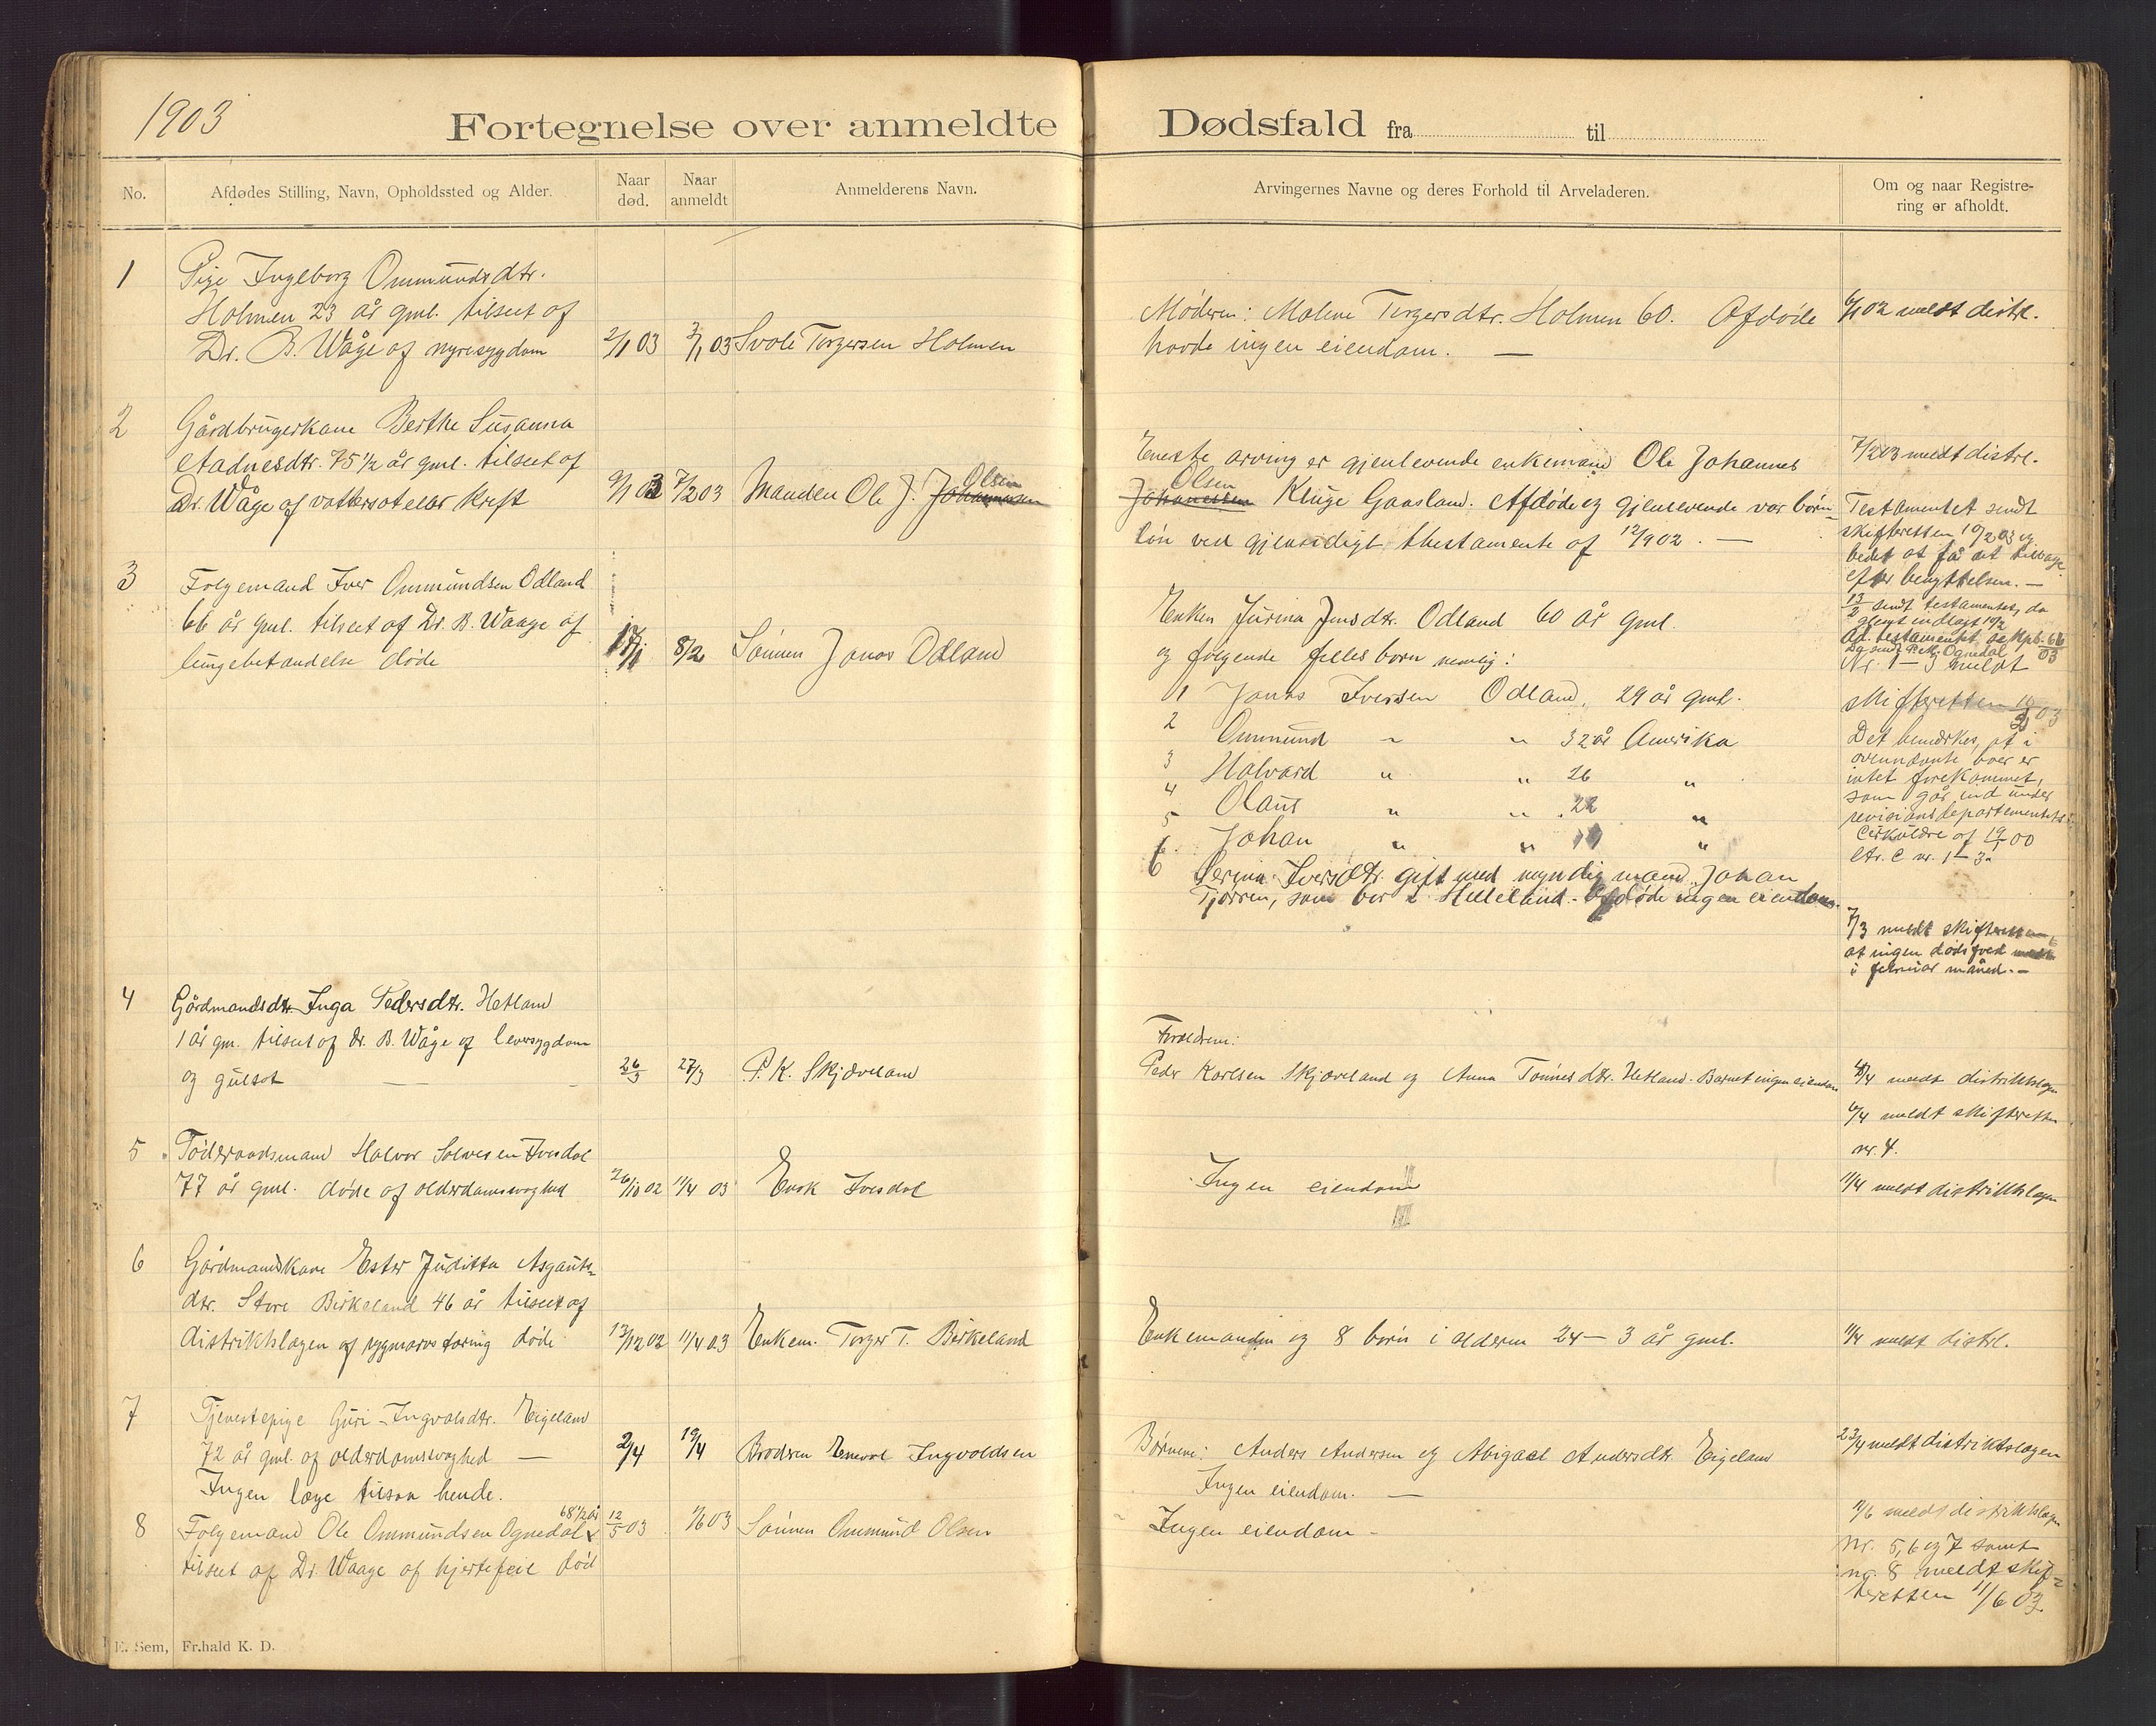 1903
Fortegnelse over anmeldte Dødsfald fra til
No.
Afdødes Stilling, Navn, Opholdssted og Alder.
Naar død.
Naar anmeldt
Anmelderens Navn.
Arvingernes Navne og deres Forhold til Arveladeren.
Om og naar Registrering er afholdt.
1
Pige Ingeborg Ommundsdtr.
Holmen 23 år gml. tilseet af
Dr. B. Wåge af nyresygdom
2/1 03
3/1 03
Torgersen Holmen
Moderen: Malene Torgersdtr. Holmen 60. Afdøde
havde ingen eiendom. —
6/1 02 meldt distrl.
2
Gårdbrugerkone Berthe Susanna
Aadnesdtr. 75 1/2 år gml. tilseet af
Dr. Wåge af vattersot eller kreft
9/1 03
7/2 03
Manden Ole J. Johannesen
Olsen
Eneste arving er gjenlevende enkemand Ole Johannes
Olsen
Johanessen Kluge Gaasland. Afdøde og gjenlevende var børn-
løn ved gjensidigt thestamente af 12/9 02. —
7/2 03 meldt distrl.
Testamentet sendt
skifteretten 10/2 03 og
bedet at få det tilbage
efter benyttelsen. —
13/2 sendt testamentet, da
glemt indlagt 10/2
Nr. 1-3 meldt
skifteretten 03
Det bemærkes, at i
ovennævnte boer er
intet forekommet,
som går ind under
revisionsdepartementets
cirkulære af 19/1 00
litr. C nr. 1-3.
3
Følgemand Iver Ommundsen Odland
66 år gml. tilseet af Dr. B. Waage af
lungebetændelse døde
17/1
8/2
Sønnen Jonas Odland
Enken Jurina Jensdtr. Odland 60 år gml.
og følgende felles børn nemlig:
1 Jonas Iversen Odland, 29 år gml.
2 Ommund " " 32 år Amerika
3 Halvard " " 26 "
4 Olaus " " 22 "
5 Johan " " 19 "
6 Serina Iversdtr. gift med myndig mand Johan
Tjørren, som bor i Helleland. Afdøde ingen eiendom.
7/3 meldt skifteretten,
at ingen dødsfald meldt
i februar måned. —
4
Gårdmandsdtr. Inga Pedersdtr. Hetland
1 år gm. tilseet af Dr. B. Wåge af leversygdom
og gulsot —
26/3
27/3
P. K. Skjæveland
Forældrene:
Peder Karlsen Skjæveland og Anna Tønnesdtr. Hetland. Barnet ingen eiendom
6/4 meldt distriktslægen
6/4 meldt skifteretten
nr. 4.
5
Føderaadsmand Halvor Salvesen Ivesdal
77 år gml. døde af alderdomssvaghed
26/10 02
11/4 03
Enok Ivesdal
Ingen eiendom
11/4 meldt distriktslægen
6
Gårdmandskone Ester Juditta Asgauts-
dtr. Store Birkeland 46 år tilseet af
distriktslægen af rygmarvstæring døde
13/12 02
11/4 03
Enkem. Torger T. Birkeland
Enkemanden og 8 børn i alderen 24 — 3 år gml.
11/4 meldt distrl.
7
Tjenestepige Guri Ingvalsdtr. Eigeland
72 år gml. af alderdomssvaghed —
Ingen læge tilsaa hende.
2/4
19/4
Broderen Enevol Ingvoldsen
Børnene: Anders Andersen og Abigael Andersdtr. Eigeland
Ingen eiendom. —
23/4 meldt distriktslægen
8
68 1/2 år
Følgemand Ole Ommundsen Ognedal
tilseet af Dr. Waage af hjertefeil død
12/5 03
1/6 03
Sønnen Ommund Olsen
Ingen eiendom —
11/6 meldt distriktslægen
Nr. 5, 6 og 7 samt
nr. 8 meldt skif-
teretten 11/6 03.
E. Sem, Fr.hald K. D.